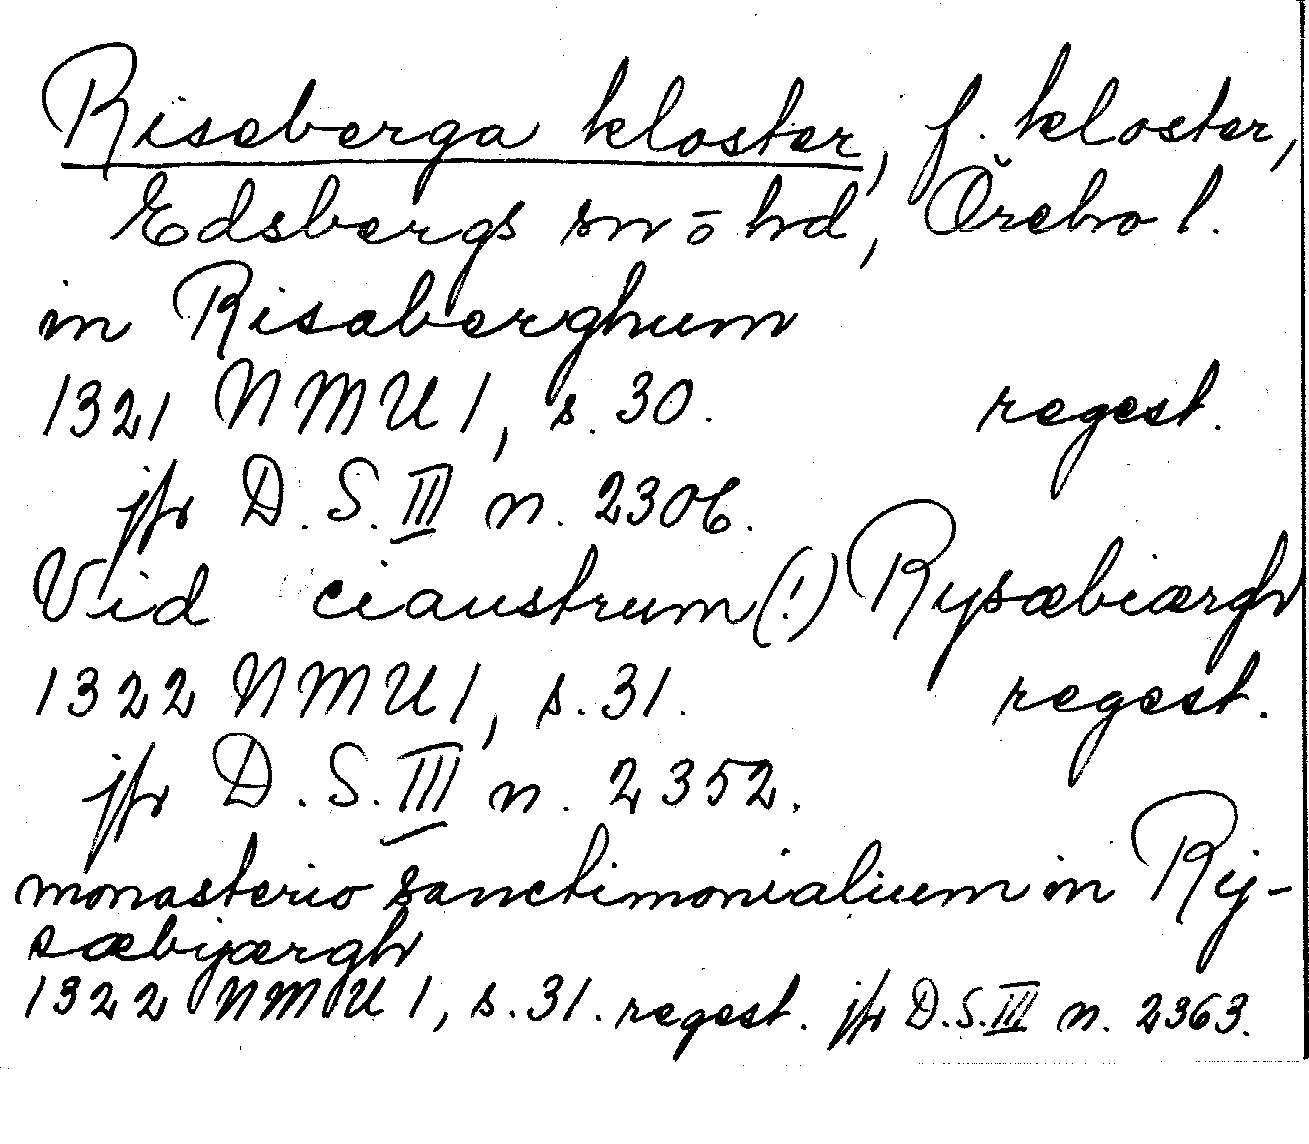 Riseberga kloster, f. kloster,
Edsbergs sn o hd, Örebro l.
in Risaberghum
1321 NMU 1, s. 30. regest.
jfr D. S. III n. 2306.
Vid ciaustrum (!) Rysæbiærgh
1322 NMU 1, s. 31. regest.
jfr D. S. III n. 2352.
monasterio sanctimonialium in Ry-
sæbyærgh
1322 NMU 1, s. 31. regest. jfr D. S. III n. 2363.